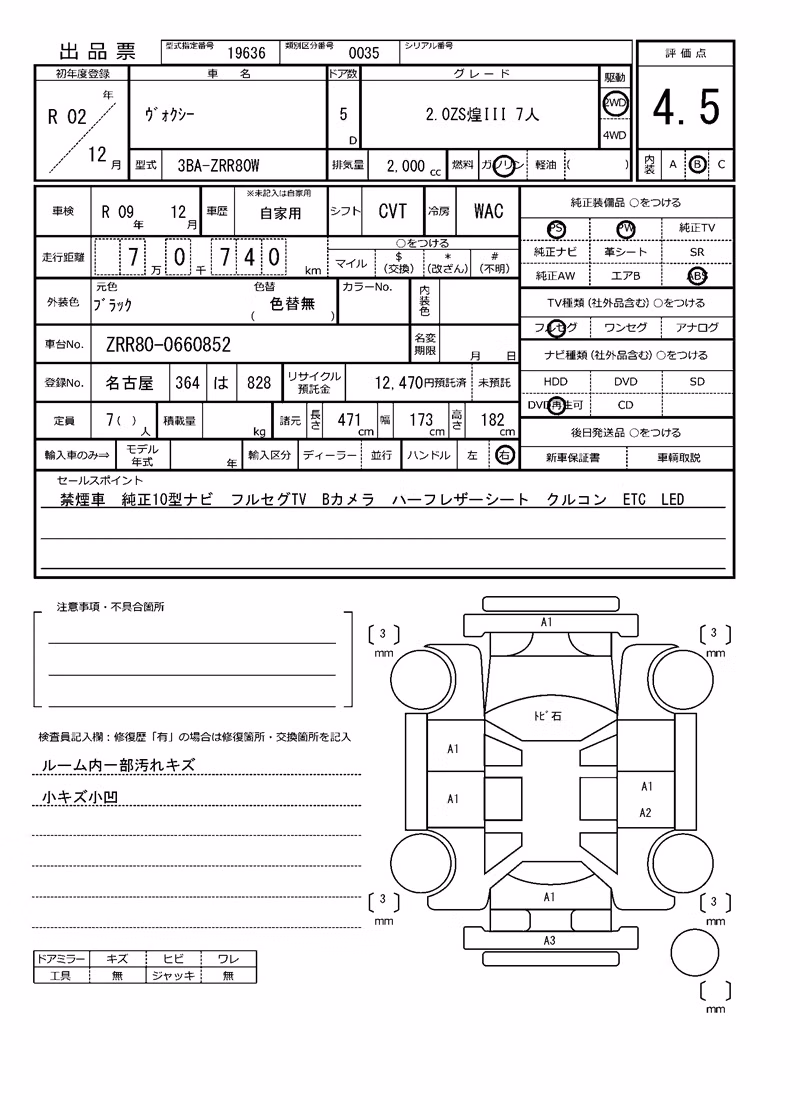 出品票 型式指定番号 19636 類別区分番号 0035 シリアル番号
評価点
4.5
内装 A B C
初年度登録 車名 ドア数 グレード 駆動
R 02 年 12 月 ヴォクシー 5 D 2.0ZS煌III 7人 2WD
4WD
型式 3BA-ZRR80W 排気量 2,000 cc 燃料 ガソリン 軽油 ( )
車検 R 09 年 12 月 車歴 ※未記入は自家用 自家用 シフト CVT 冷房 WAC
走行距離 7 万 0 千 7 4 0 km ○をつける
マイル $(交換) *(改ざん) #(不明)
外装色 元色 ブラック 色替 色替無 ( ) カラーNo. 内装色
車台No. ZRR80-0660852 名変期限 月 日
登録No. 名古屋 364 は 828 リサイクル預託金 12,470円預託済 未預託
定員 7( ) 人 積載量 kg 諸元 長さ 471 cm 幅 173 cm 高さ 182 cm
輸入車のみ⇒ モデル年式 年 輸入区分 ディーラー 並行 ハンドル 左 右
純正装備品 ○をつける
PS PW 純正TV
純正ナビ 革シート SR
純正AW エアB ABS
TV種類(社外品含む)○をつける
フルセグ ワンセグ アナログ
ナビ種類(社外品含む)○をつける
HDD DVD SD
DVD再生可 CD
後日発送品 ○をつける
新車保証書 車輌取説
セールスポイント
禁煙車 純正10型ナビ フルセグTV Bカメラ ハーフレザーシート クルコン ETC LED
注意事項・不具合箇所
検査員記入欄:修復歴「有」の場合は修復箇所・交換箇所を記入
ルーム内一部汚れキズ
小キズ小凹
ドアミラー キズ ヒビ ワレ
工具 無 ジャッキ 無
A1
3 mm
3 mm
トビ石
A1
A1
A1
A2
A1
3 mm
3 mm
A3
mm